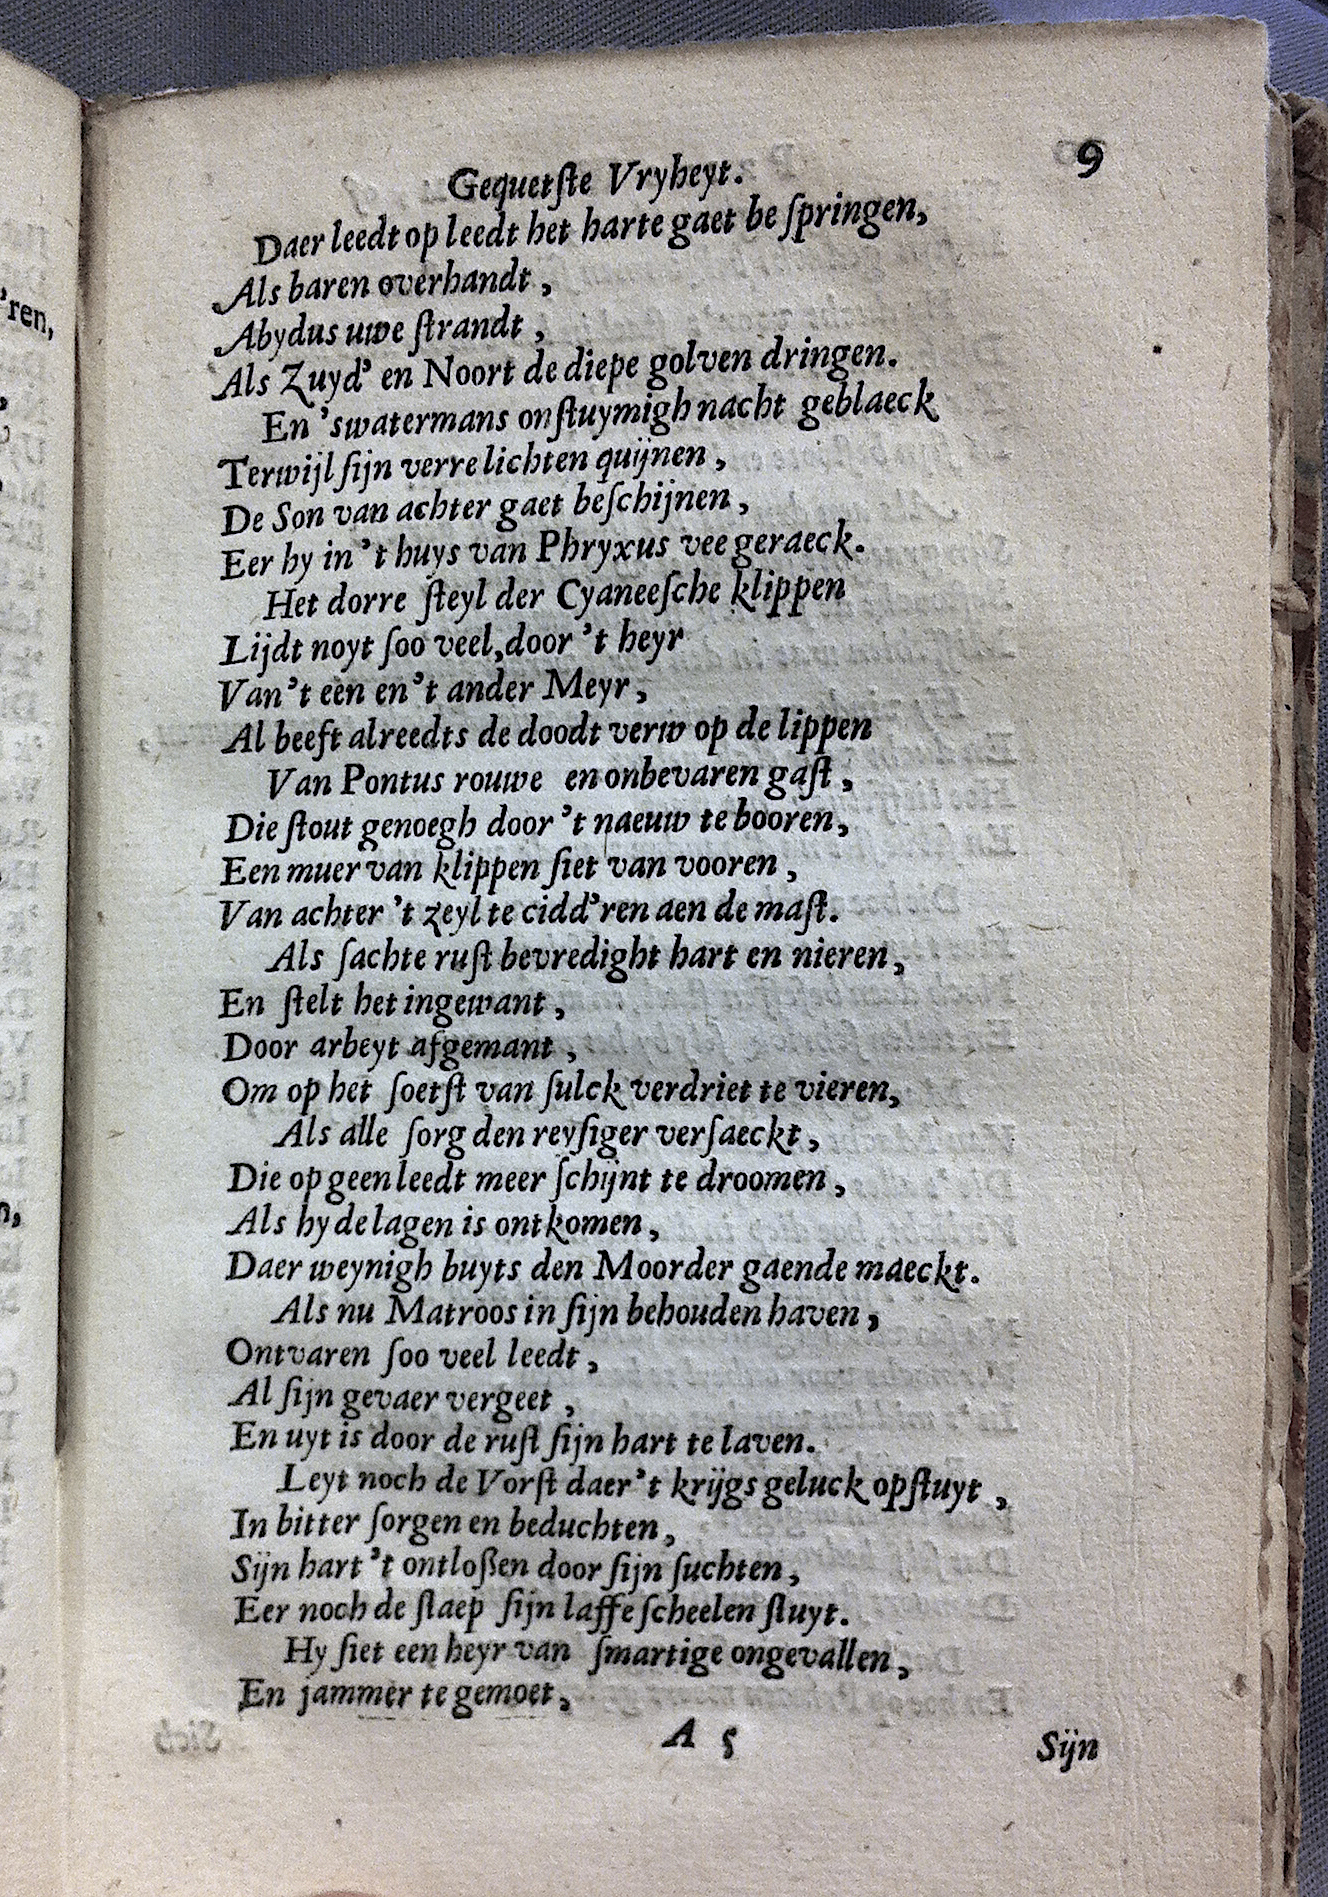 Gequetſte Vryheyt. 9
Daer leedt op leedt het harte gaet be ſpringen,
Als baren overhandt,
Abydus uwe ſtrandt,
Als Zuyd' en Noort de diepe golven dringen.
En 'swatermans onſtuymigh nacht geblaeck
Terwijl ſijn verre lichten quijnen,
De Son van achter gaet beſchijnen,
Eer hy in 't huys van Phryxus vee geraeck.
Het dorre ſteyl der Cyaneeſche klippen
Lijdt noyt ſoo veel, door 't heyr
Van 't een en 't ander Meyr,
Al beeft alreedts de doodt verw op de lippen
Van Pontus rouwe en onbevaren gaſt,
Die ſtout genoegh door 't naeuw te booren,
Een muer van klippen ſiet van vooren,
Van achter 't zeyl te cidd'ren aen de maſt.
Als ſachte ruſt bevredight hart en nieren,
En ſtelt het ingewant,
Door arbeyt afgemant,
Om op het ſoetſt van ſulck verdriet te vieren,
Als alle ſorg den reyſiger verſaeckt,
Die op geen leedt meer ſchijnt te droomen,
Als hy de lagen is ontkomen,
Daer weynigh buyts den Moorder gaende maeckt.
Als nu Matroos in ſijn behouden haven,
Ontvaren ſoo veel leedt,
Al ſijn gevaer vergeet,
En uyt is door de ruſt ſijn hart te laven.
Leyt noch de Vorſt daer 't krijgs geluck opſtuyt,
In bitter ſorgen en beduchten,
Sijn hart 't ontloßen door ſijn ſuchten,
Eer noch de ſlaep ſijn laffe ſcheelen ſluyt.
Hy ſiet een heyr van ſmartige ongevallen,
En jammer te gemoet,
A 5 Sijn
'ren,